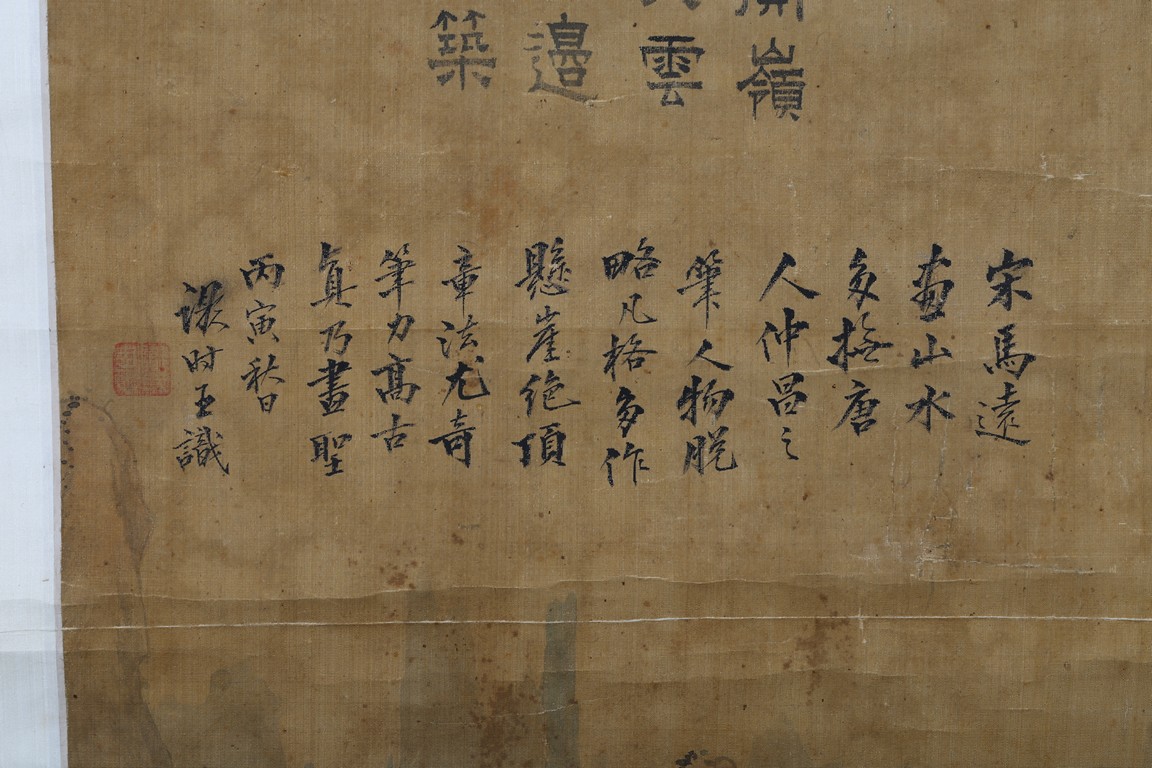 嶺
雲
邊
築
宋馬遠
畫山水
多撫唐
人仲昌之
筆人物脱
略凡格多作
懸崖絕頂
章法尤奇
筆力高古
真乃畫聖
丙寅秋日
時玉識